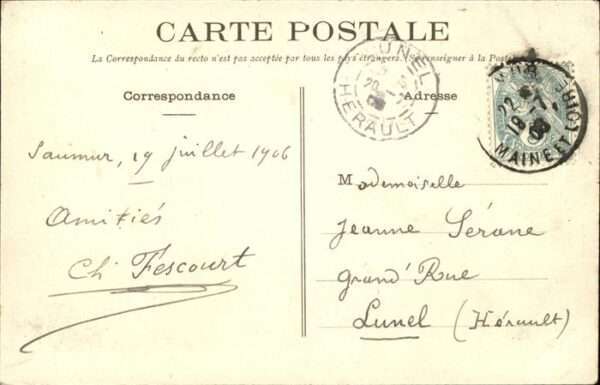 CARTE POSTALE
La Correspondance du recto n'est pas acceptée par tous les pays étrangers. (Se renseigner à la Poste)
Correspondance
Adresse
LUNEL
HÉRAULT
MAINE ET
Saumur, 19 juillet 1906
Amitiés
Ch Fescourt
Mademoiselle
Jeanne Sérane
Grand' Rue
Lunel (Hérault)